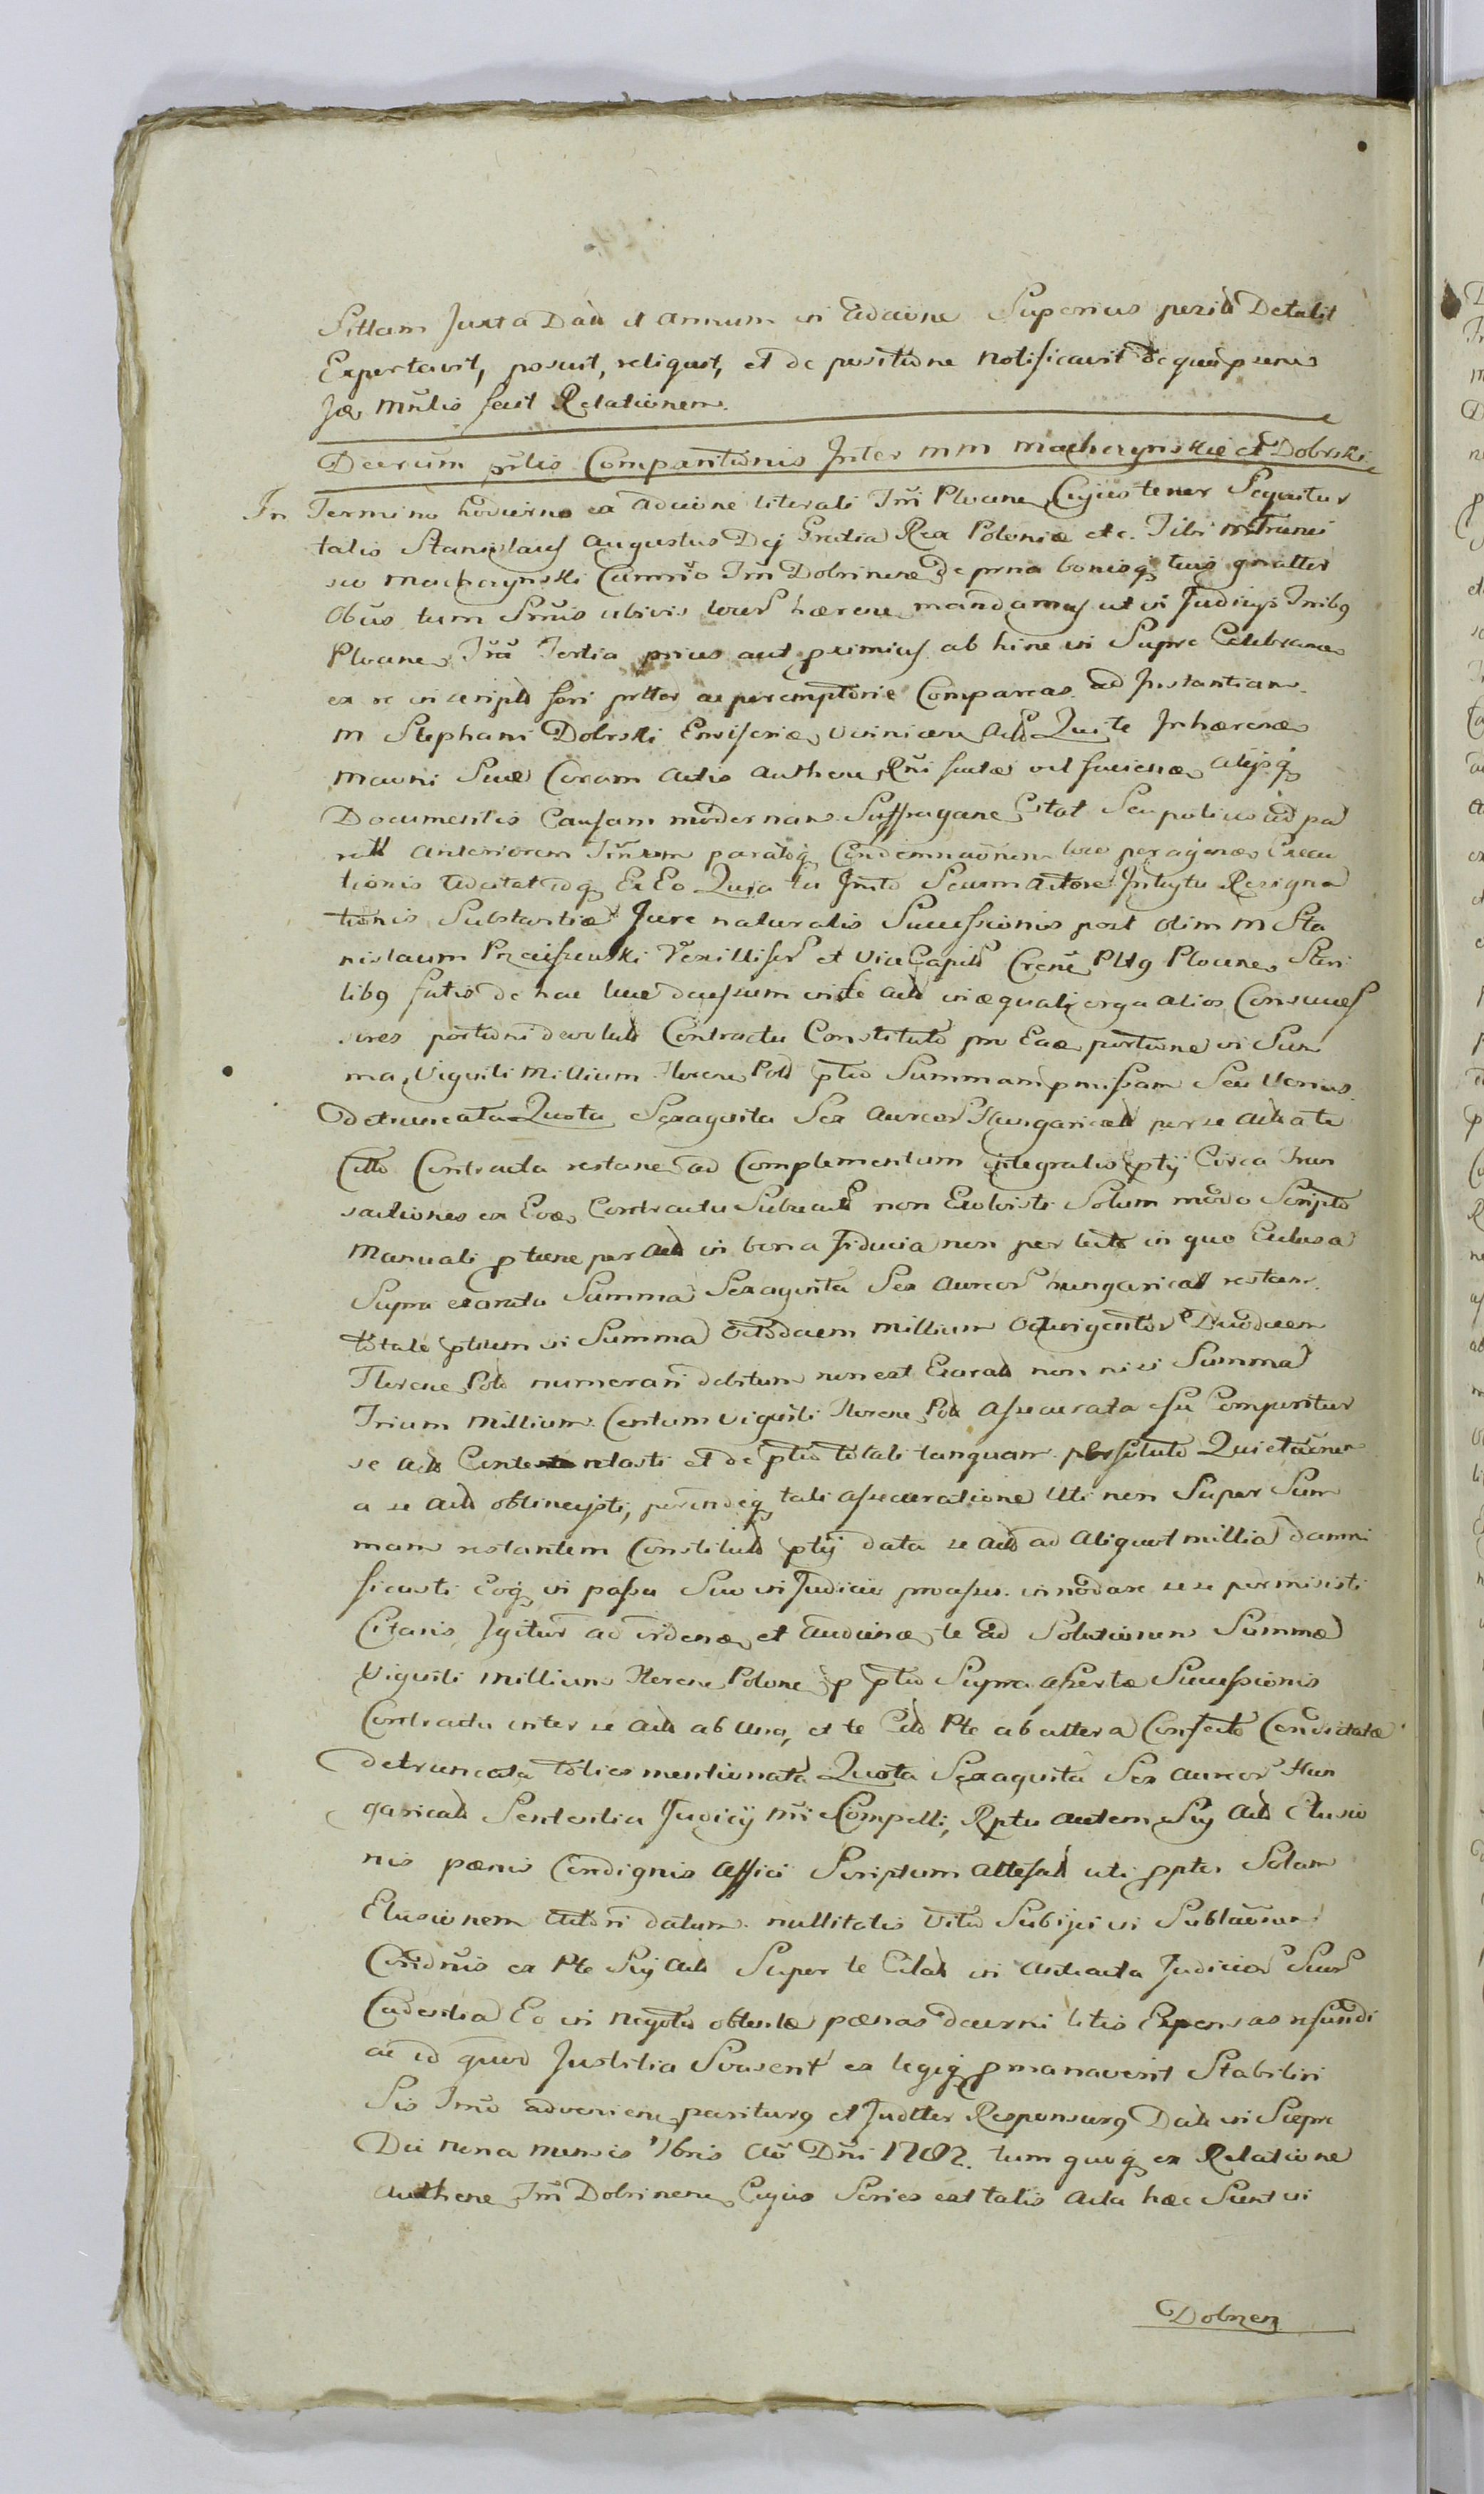 Sittam Juxta Datt et annum in adcione Superius perill Detulit
Exportavit, posuit, reliquit, et de positione notificavit de quei psens
Jox Mnlis fecit Relationem
Decretum pntis Comparitionis Inter MM Macherynskie et Dobrski
In Termino hodierno ex adcione literali Trri Plocene Cujus tenor Sequitur
talis Stanislaus Augustus Dej Gratia Rex Poloniæ etc. Tibi M Franci
sco Macherynski Camrio Trri Dobrinen de psona bonisq tuis gnatter
Obus tum Smis ubivis haeren mandamus ut in Judicijs Tribq
Plocane Tra Tertia prius aut proximius ab hinc in Sepre Celebrane
ex re in scripto fori pntter ac peremptorie Compareas ad Instantiam
M Stephani Dobrski Ensiferi Visnicen Act Qui te Inhærene
Mauni Suæ Coram Actis Authen Rni factæ vel faciene alijsq
Documentis Causam modernam Suffragane Citat Seu potius ad pa
ritt anteriorem Trinum paratoq Condemnaonem loco peragene Execu
tionis Adcitat idq Ex Eo Quia tu Insto Secum Actore Intuytu Resigna
tionis Substantiæ Jure naturalis Successionis post olim M Sta
nislaum Przeciszewski Vexillifer et ViceCapitt Crene Pltq Plocane Steri
libq fatis de hac luce decessum in te actt in æquali erga alios Consucces
sores portioni devolutt Contractu Constituto pro Eae portione in Sum
ma Viginti Millium Floren Poll ptio Summam pmissam Seu Verius
detruncata Quota Sexaginta Sex Aureor Hungaricall per se act a te
Citto Contracta restane ad Complementum integralis ptij Circa Tran
sactiones ex Eoe Contractu Subsecutt non Exolvisti Solum modo Scripto
Manuali p tuene par actt in bona fiducia non per lecto in quo Exclusa
Supra exarata Summa Sexaginta Sex Aureor hungaricall restan
totale ptium in Summa Octodecem Millium Octingentor Duodecem
Floren Poll numerari debitum non est Exaratt non nisi Summa
Trium Millium Centum Viginti Floren Poll assecurata esse Comperitur
se actt Contentasti et de ptio totali tanquam psoluto Quietaonem
a se actt obtinuisti, perindeq tali assecuratione Uti non Super Sum
mam restantem Constitutt ptij data se actt ad aliquot millia damni
ficasti Eoq in passu Suo in Judicio processu innodare sese permisisti
Citaris Igitur ad videne et audiene te ad Solutionem Summæ
Viginti Millium Floren Polone p ptio Supra assertæ Successionis
Contractu inter se actt ab una, et te Citt Pte ab altera Confecto Conditatæ
detruncata toties mentionata Quota Sexaginta Sex Aureor Hun
garicall Sententia Judicij Nri Compelli, Rptu autem Sui Act Elusio
nis pænis Condignis affici Scriptum attesatt uti ppter Solam
Elusionem Actori datum nullitatis Vitio Subijci in Sublaonem
Condnis ex Pte Sui Act Super te Citatt in Attracta Judicior Suor
Cadentia Eo in Negotio obtentæ pænas decerni litis Expensas refundi
ac id quod Justitia Svaserit ex legiq pmanaverit Stabiliri
Sis Trno advenien pariturq et Judtter Responsurq Datt in Sepre
Die Nona Mensis 7bris Ao Dni 1782. tum quoq ex Relatione
Authene Trri Dobrinene Cujus Series est talis Acta hæc Sunt in
Dobrzen